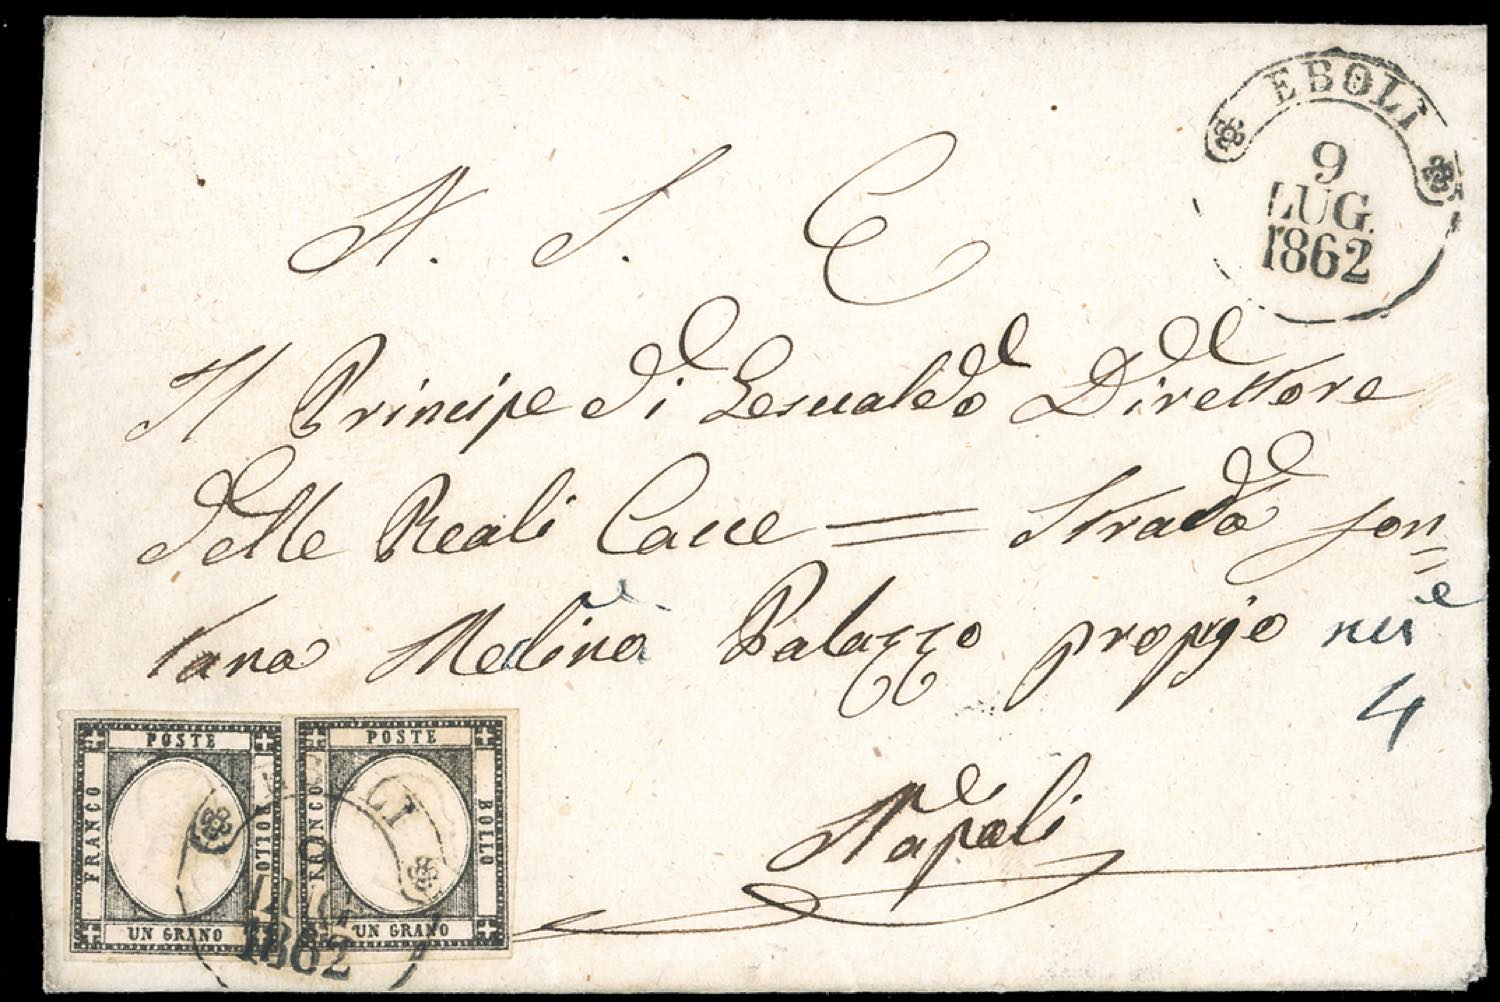 EBOLI
9
LUG.
1862
A. S. E.
Il Principe di Gesualdo Direttore
delle Reali Cacce = Strada fon=
tana Medina Palazzo proprio
4
Napoli
POSTE
FRANCO
BOLLO
UN GRANO
POSTE
FRANCO
BOLLO
UN GRANO
LUG
1862